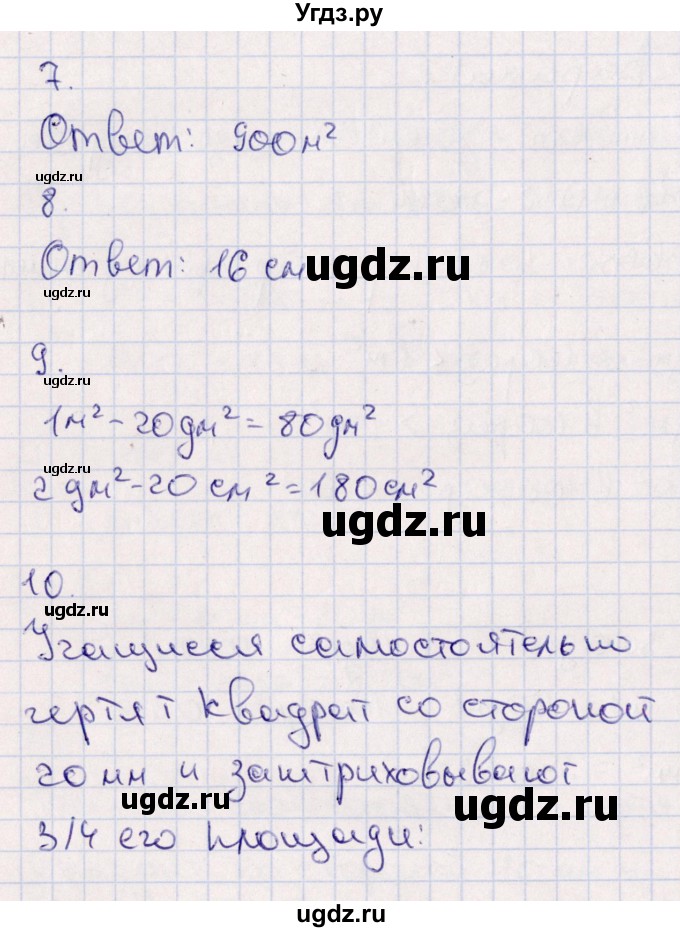 Угдз.ру
7.
Ответ: 900 м²
ugdz.ru
8.
Ответ: 16 см
ugdz.ru
ugdz.ru
9.
ugdz.ru
1м² - 20дм² = 80дм²
2 дм² - 20 см² = 180см²
ugdz.ru
10.
ugdz.ru
Учащиеся самостоятельно
чертят квадрат со стороной
20 мм и заштриховывают
ugdz.ru
ugdz.ru
3/4 его площади:
ugdz.ru